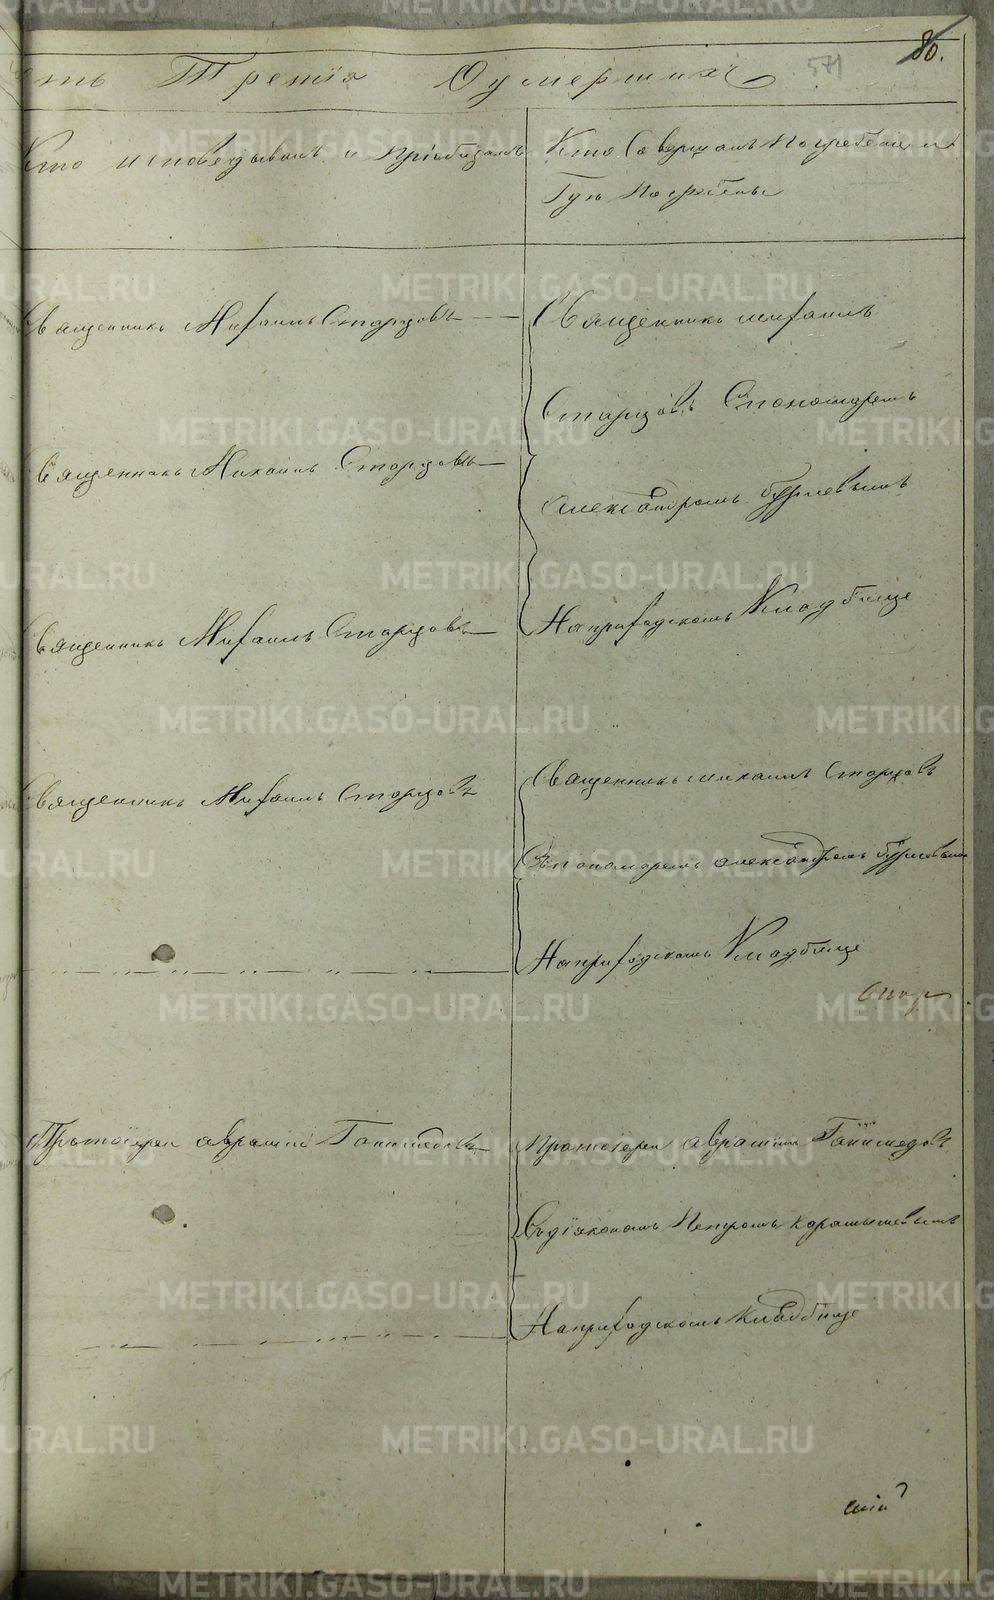 80.
571
сть Третія Оумершихъ
Кто исповѣдывалъ и пріобщалъ
Кто Совершалъ Погребеніе и
Гдѣ Погребены
Священникъ Михаилъ Старцовъ
Священникъ Михаилъ
Старцовъ Спономаремъ
Священникъ Михаилъ Старцовъ
Александромъ
На приходскомъ Кладбище
Священникъ Михаилъ Старцовъ
Священникъ Михаилъ Старцовъ
Священникъ Михаилъ Старцовъ
Съ пономаремъ Александромъ
На приходскомъ Кладбище
Протоіерей Авраамій Ганимедовъ
Протоіерей Авраамій Ганимедовъ
Съ діякономъ Петромъ Карамышевымъ
На приходскомъ Кладбище
METRIKI.GASO-URAL.RU